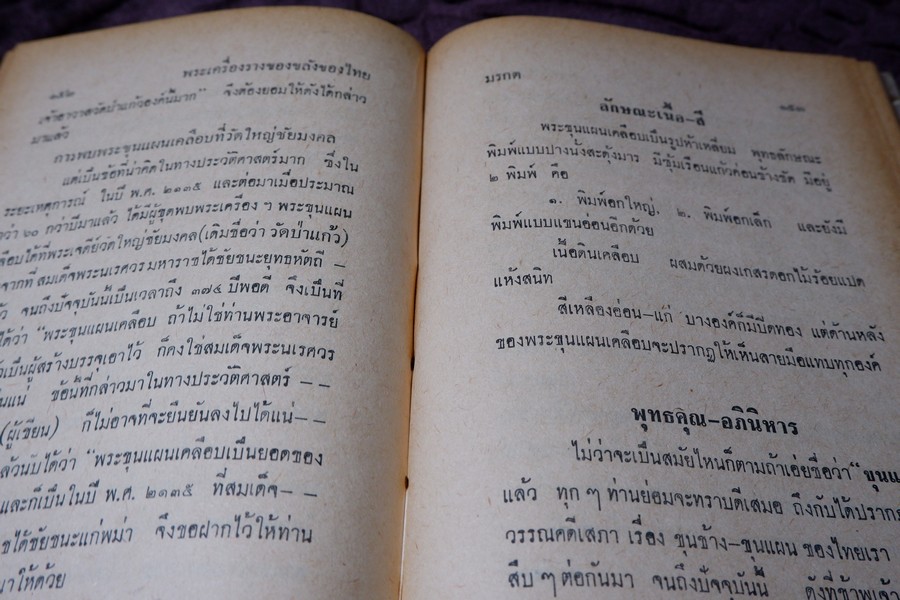 ๒๕๒
พระเครื่องรางของขลังของไทย
เจ้าอาวาสวัดป่าแก้วองค์นี้มาก" จึงต้องยอมให้ดังได้กล่าว
มาแล้ว
การพบพระขุนแผนเคลือบที่วัดใหญ่ชัยมงคล
แต่เป็นข้อที่น่าคิดในทางประวัติศาสตร์มาก ซึ่งใน
ระยะเหตุการณ์ ในปี พ.ศ. ๒๑๓๕ และต่อมาเมื่อประมาณ
กว่า ๒๐ กว่าปีมาแล้ว ได้มีผู้ขุดพบพระเครื่อง ๆ พระขุนแผน
ได้ที่พระเจดีย์วัดใหญ่ชัยมงคล(เดิมชื่อว่า วัดป่าแก้ว)
จากที่ สมเด็จพระนเรศวร มหาราชได้ชัยชนะยุทธหัตถี –
จนถึงปัจจุบันนี้เป็นเวลาถึง ๓๗๔ ปีพอดี จึงเป็นที่
ได้ว่า "พระขุนแผนเคลือบ ถ้าไม่ใช่ท่านพระอาจารย์
เป็นผู้สร้างบรรจุเอาไว้ ก็คงใช่สมเด็จพระนเรศวร
ข้อนี้ที่กล่าวมาในทางประวัติศาสตร์ – –
(ผู้เขียน) ก็ไม่อาจที่จะยืนยันลงไปได้แน่– –
นับได้ว่า "พระขุนแผนเคลือบเป็นยอดของ
และก็เป็นในปี พ.ศ. ๒๑๓๕ ที่สมเด็จ– –
ได้ชัยชนะแก่พม่า จึงขอฝากไว้ให้ท่าน
มาให้ด้วย
มรกต
๒๕๓
ลักษณะเนื้อ–สี
พระขุนแผนเคลือบเป็นรูปห้าเหลี่ยม พุทธลักษณะ
พิมพ์แบบปางนั่งสะดุ้งมาร มีซุ้มเรือนแก้วค่อนข้างชัด มีอยู่
๒ พิมพ์ คือ
๑. พิมพ์อกใหญ่, ๒. พิมพ์อกเล็ก และยังมี
พิมพ์แบบแขนอ่อนอีกด้วย
เนื้อดินเคลือบ ผสมด้วยผงเกสรดอกไม้ร้อยแปด
แห้งสนิท
สีเหลืองอ่อน–แก่ บางองค์ก็มีปิดทอง แต่ด้านหลัง
ของพระขุนแผนเคลือบจะปรากฏให้เห็นลายมือแทบทุกองค์
พุทธคุณ–อภินิหาร
ไม่ว่าจะเป็นสมัยไหนก็ตามถ้าเอ่ยชื่อว่า"ขุนแ
แล้ว ทุก ๆ ท่านย่อมจะทราบดีเสมอ ถึงกับได้ปราก
วรรณคดีเสภา เรื่อง ขุนช้าง–ขุนแผน ของไทยเรา
สืบ ๆ ต่อกันมา จนถึงปัจจุบันนี้ ดังที่ข้าพเจ้า